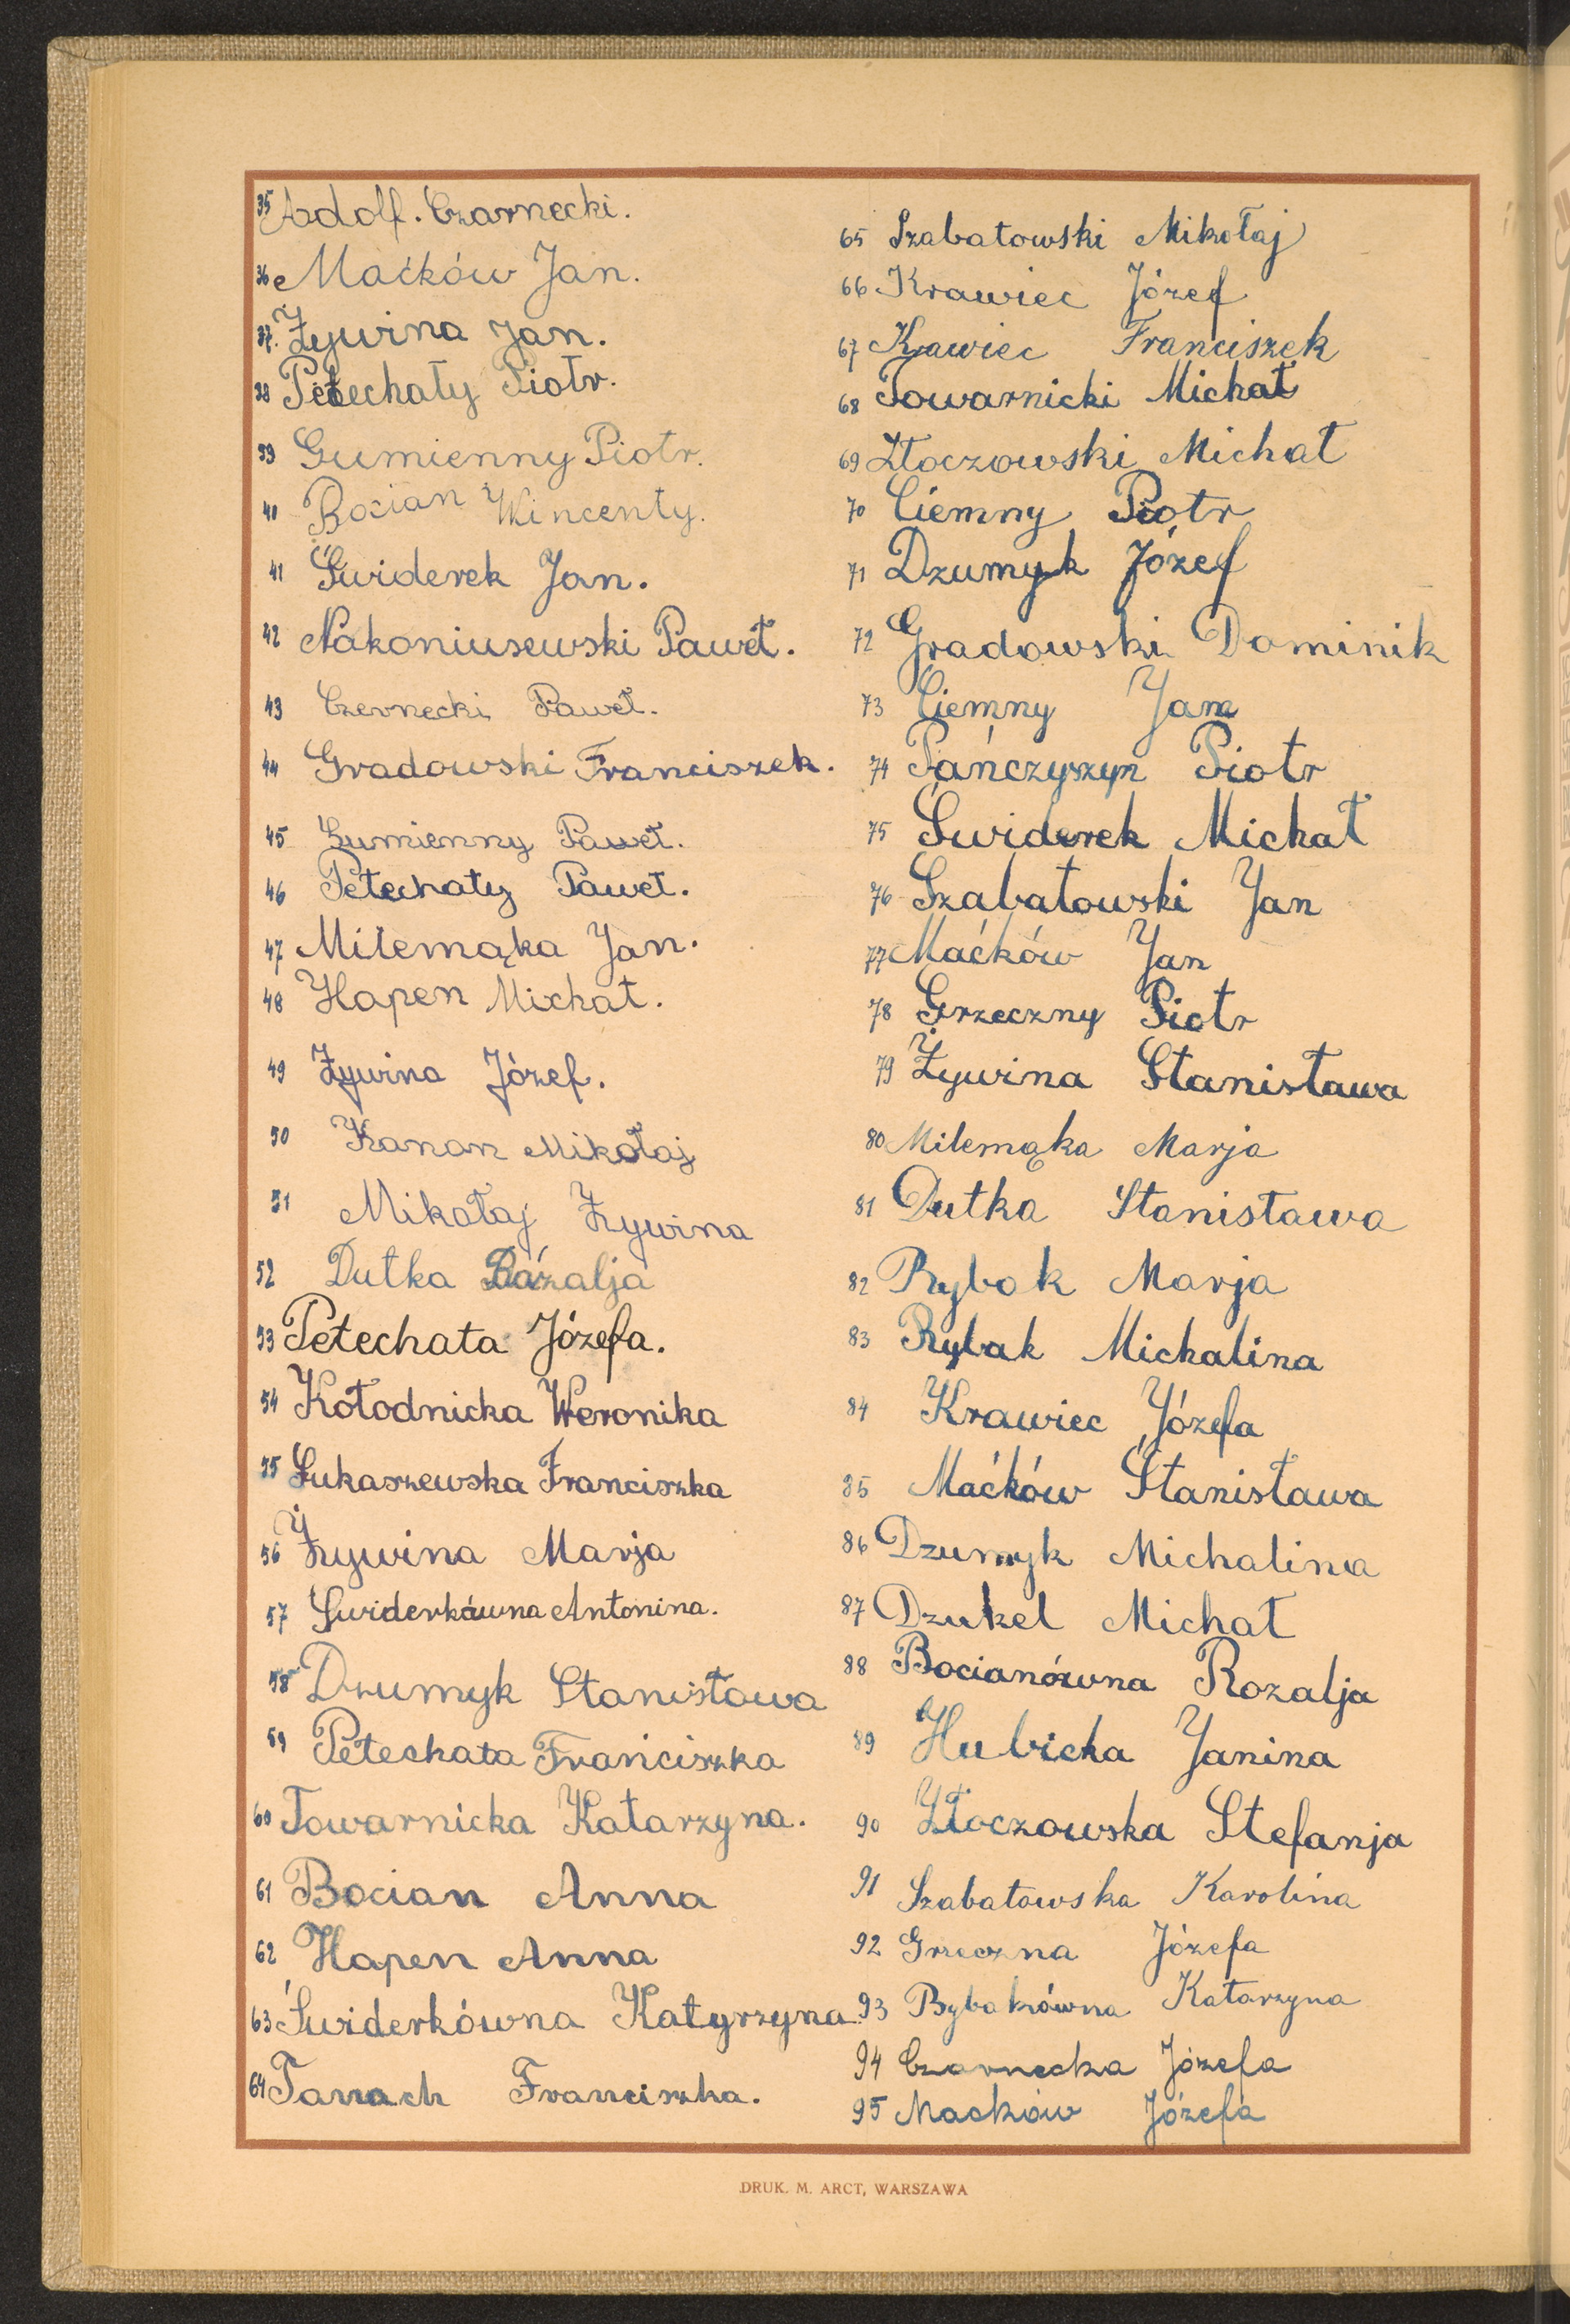 35 Adolf. Czarnecki.
36 Maćków Jan.
37. Żywina Jan.
38 Petechaty Piotr.
39 Gumienny Piotr.
40 Bocian Wincenty.
41 Świderek Jan.
42 Nakoniusewski Paweł.
43 Czernecki Paweł.
44 Gradowski Franciszek.
45 Gumienny Paweł.
46 Petechaty Paweł.
47 Milemąka Jan.
48 Hapen Michał.
49 Żywina Józef.
50 Kanan Mikołaj
51 Mikołaj Żywina
52 Dutka Rozalja
53 Petechata Józefa.
54 Kołodnicka Weronika
55 Łukaszewska Franciszka
56 Żywina Marja
57 Swiderkówna Antonina.
58 Dzumyk Stanisława
59 Petechata Franciszka
60 Towarnicka Katarzyna.
61 Bocian Anna
62 Hapen Anna
63 Świderkówna Katyrzyna
64 Tanach Franciszka.
65 Szabatowski Mikołaj
66 Krawiec Józef
67 Krawiec Franciszek
68 Towarnicki Michał
69 Złoczowski Michał
70 Ciemny Piotr
71 Dzumyk Józef
72 Gradowski Dominik
73 Ciemny Jan
74 Pańczyszyn Piotr
75 Świderek Michał
76 Szabatowski Jan
77 Maćków Jan
78 Grzeczny Piotr
79 Żywina Stanisława
80 Milemąka Marja
81 Dutka Stanisława
82 Rybak Marja
83 Rybak Michalina
84 Krawiec Józefa
85 Maćków Stanisława
86 Dzumyk Michalina
87 Dzukel Michał
88 Bocianówna Rozalja
89 Hubicka Janina
90 Złoczowska Stefanja
91 Szabatowska Karolina
92 Grzeczna Józefa
93 Rybakówna Katarzyna
94 Czarnecka Józefa
95 Maćków Józefa
DRUK. M. ARCT, WARSZAWA